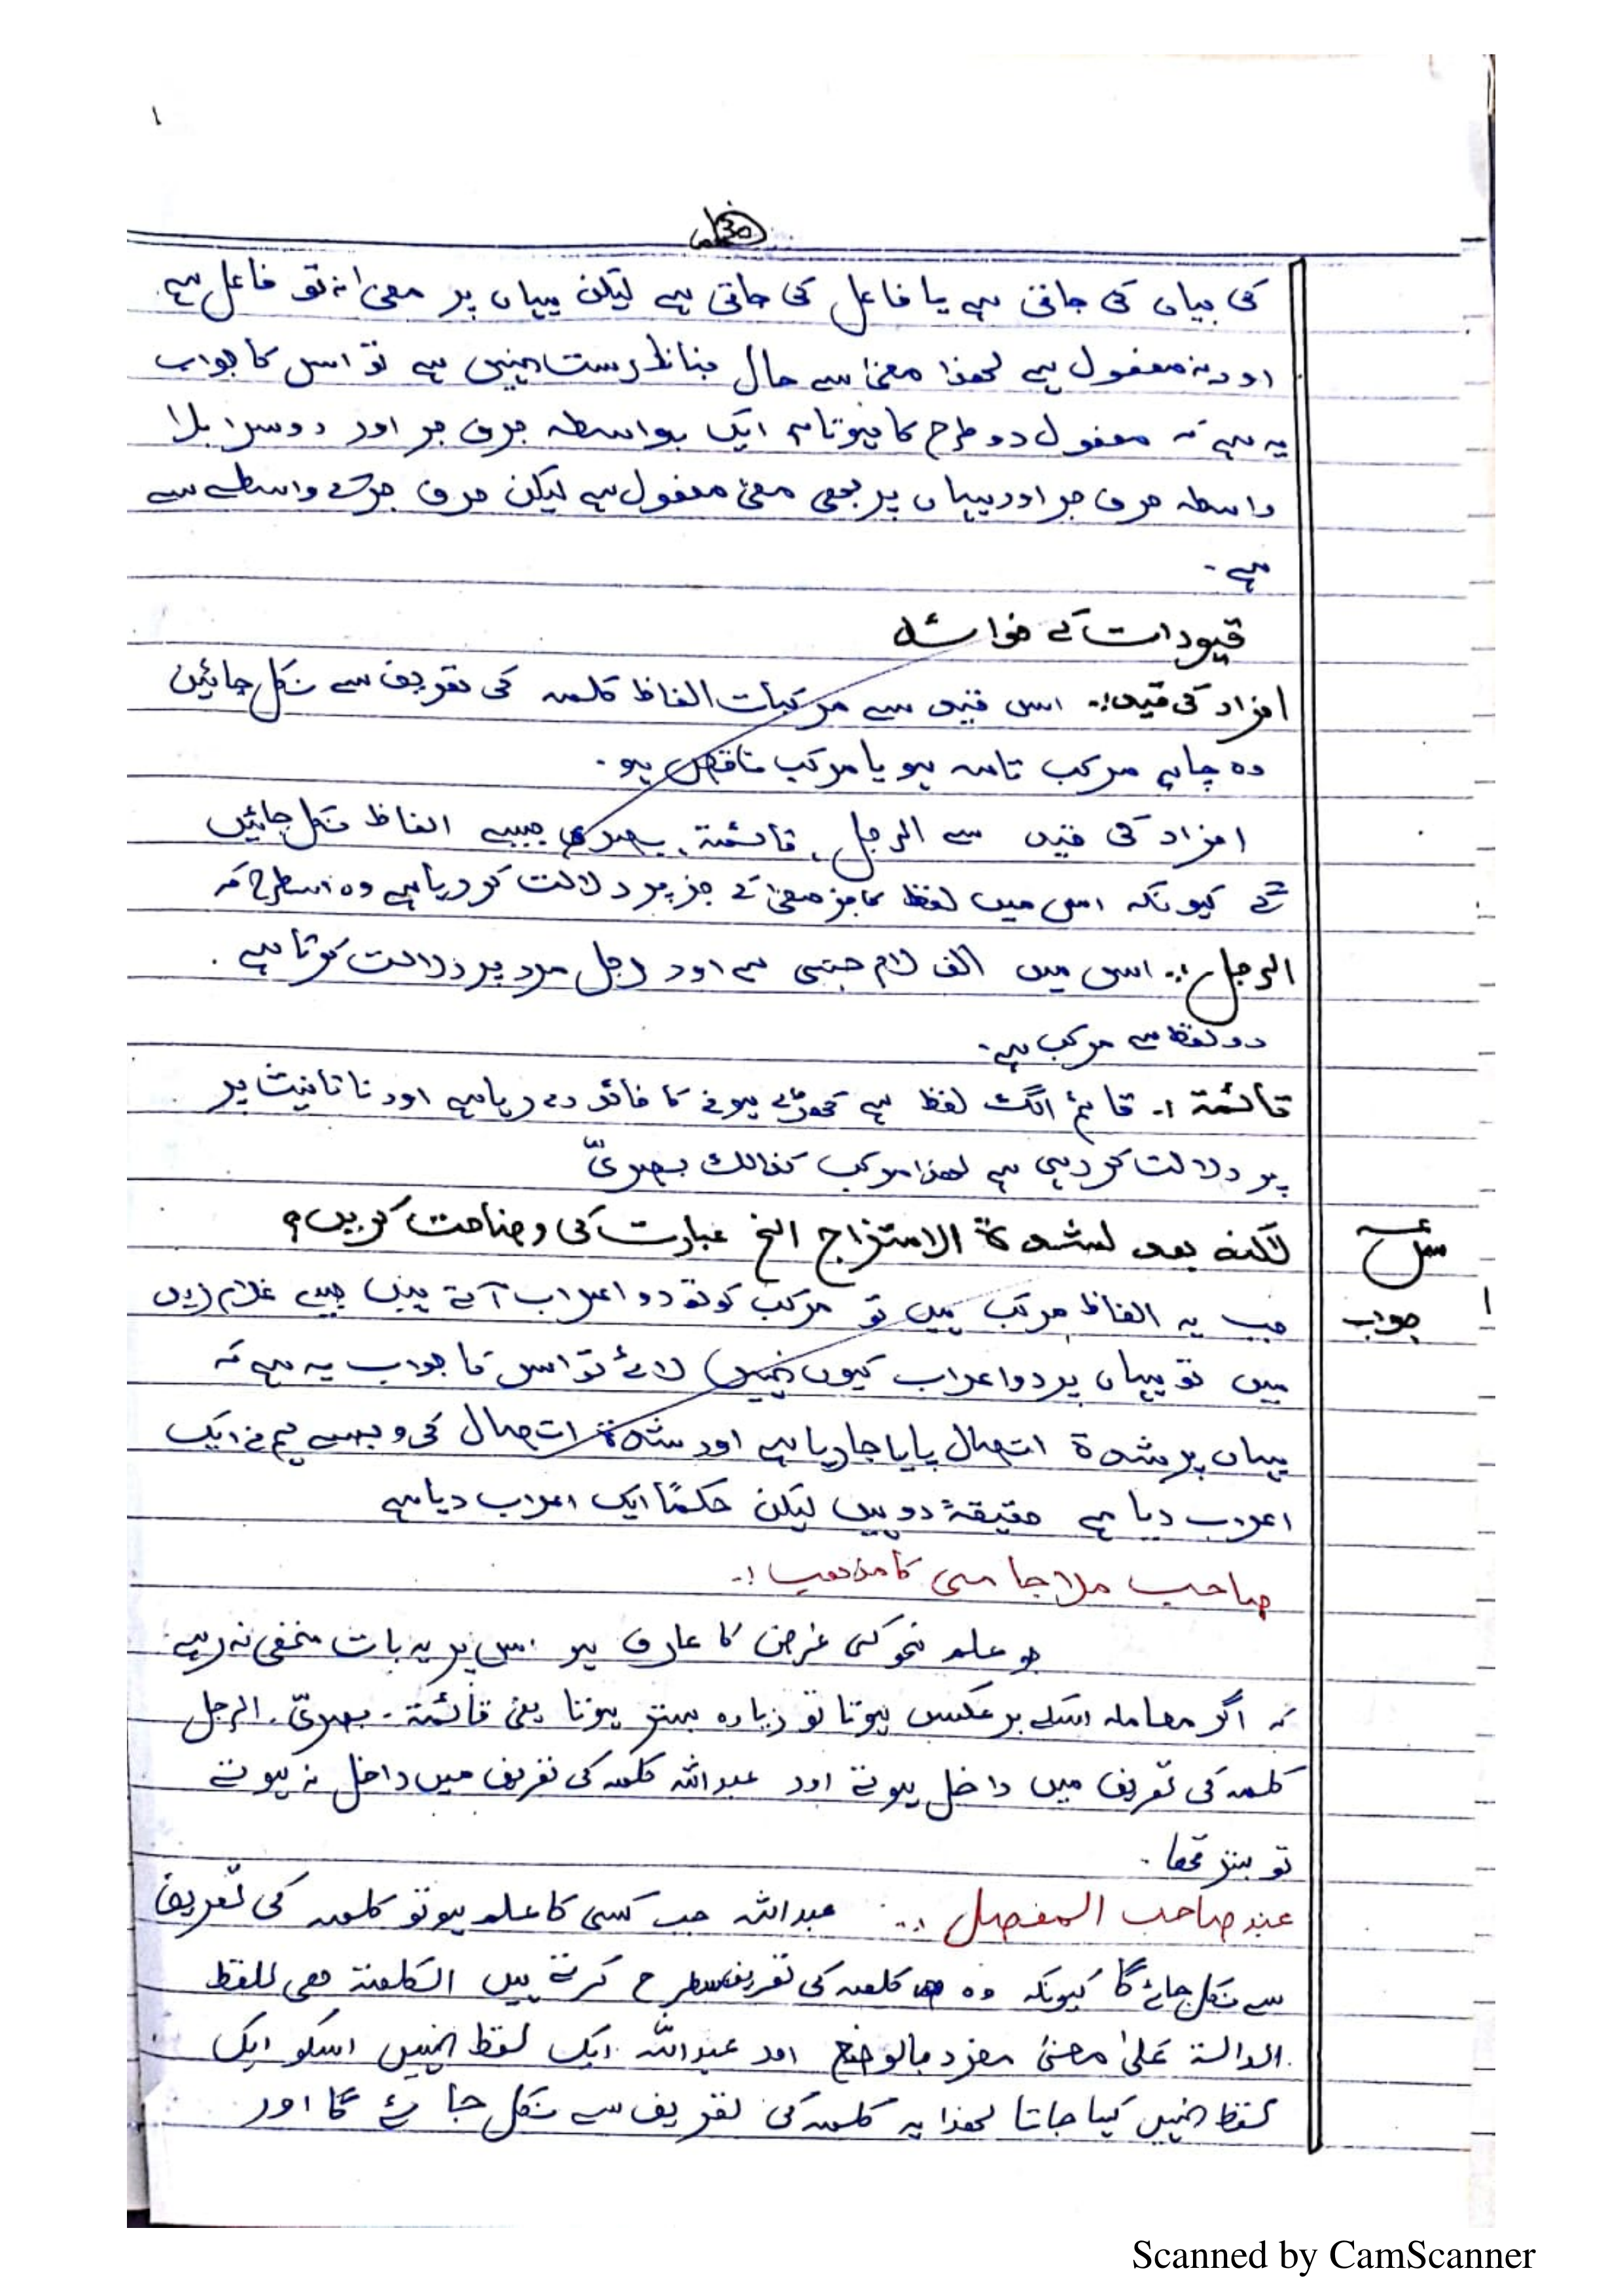 کی بیان کی جاتی ہے یا فاعل کی جاتی ہے لیکن یہاں پر معنیٰ نہ تو فاعل ہے
اور نہ مفعول ہے لھذا معنیٰ سے حال بنانا درست نہیں ہے تو اس کا جواب
یہ ہے کہ مفعول دو طرح کا ہوتا ہے ایک بواسطہ حرف جر اور دوسرا بلا
واسطہ حرف جر اور یہاں پر بھی معنیٰ مفعول ہے لیکن حرف جر کے واسطے سے
ہے ۔
قیودات کے فوائد
افراد کی قید :۔ اس قید سے مرکبات الفاظ کلمہ کی تعریف سے نکل جائیں
وہ چاہے مرکب تامہ ہو یا مرکب ناقص ہو ۔
افراد کی قید سے الرجل ، قائمۃ ، بصری جیسے الفاظ نکل جائیں
گے کیونکہ اس میں لفظ کا جز معنیٰ کے جز پر دلالت کر رہا ہے وہ اسطرح کہ
الرجل :۔ اس میں الف لام جنسی ہے اور رجل مرد پر دلالت کرتا ہے ۔
دو لفظ سے مرکب ہے ۔
قائمۃ :۔ قائم الگ لفظ ہے کھڑے ہونے کا فائدہ دے رہا ہے اور تا تانیث پر
پر دلالت کر رہی ہے لھذا مرکب کذالک بصریّ
سوال لکنہ بعد لشدۃ الامتزاج الخ عبارت کی وضاحت کریں ؟
جواب جب یہ الفاظ مرکب ہیں تو مرکب کو تو دو اعراب آتے ہیں جیسے غلام زید
میں تو یہاں پر دو اعراب کیوں نہیں لائے تو اس کا جواب یہ ہے کہ
یہاں پر شدۃ اتصال پایا جا رہا ہے اور شدۃ اتصال کی وجہ سے ہم نے ایک
اعراب دیا ہے حقیقۃً دو ہیں لیکن حکمًا ایک اعراب دیا ہے
صاحب ملا جامی کا مذھب :۔
جو علم نحو کی غرض کا عارف ہو اس پر یہ بات مخفی نہ رہے
کہ اگر معاملہ اسکے برعکس ہوتا تو زیادہ بہتر ہوتا یعنی قائمۃ ۔ بصریّ ۔ الرجل
کلمہ کی تعریف میں داخل ہوتے اور عبداللہ کلمہ کی تعریف میں داخل نہ ہوتے
تو بہتر تھا ۔
عند صاحب المفصل :۔ عبداللہ جب کسی کا علم ہو تو کلمہ کی تعریف
سے نکل جائے گا کیونکہ وہ کلمہ کی تعریف اسطرح کرتے ہیں الکلمۃ ھی اللفظ
الدالۃ علیٰ معنیٰ مفرد بالوضع اور عبداللہ ایک لفظ نہیں اسکو ایک
لفظ نہیں کہا جاتا لھذا یہ کلمہ کی تعریف سے نکل جائے گا اور
Scanned by CamScanner